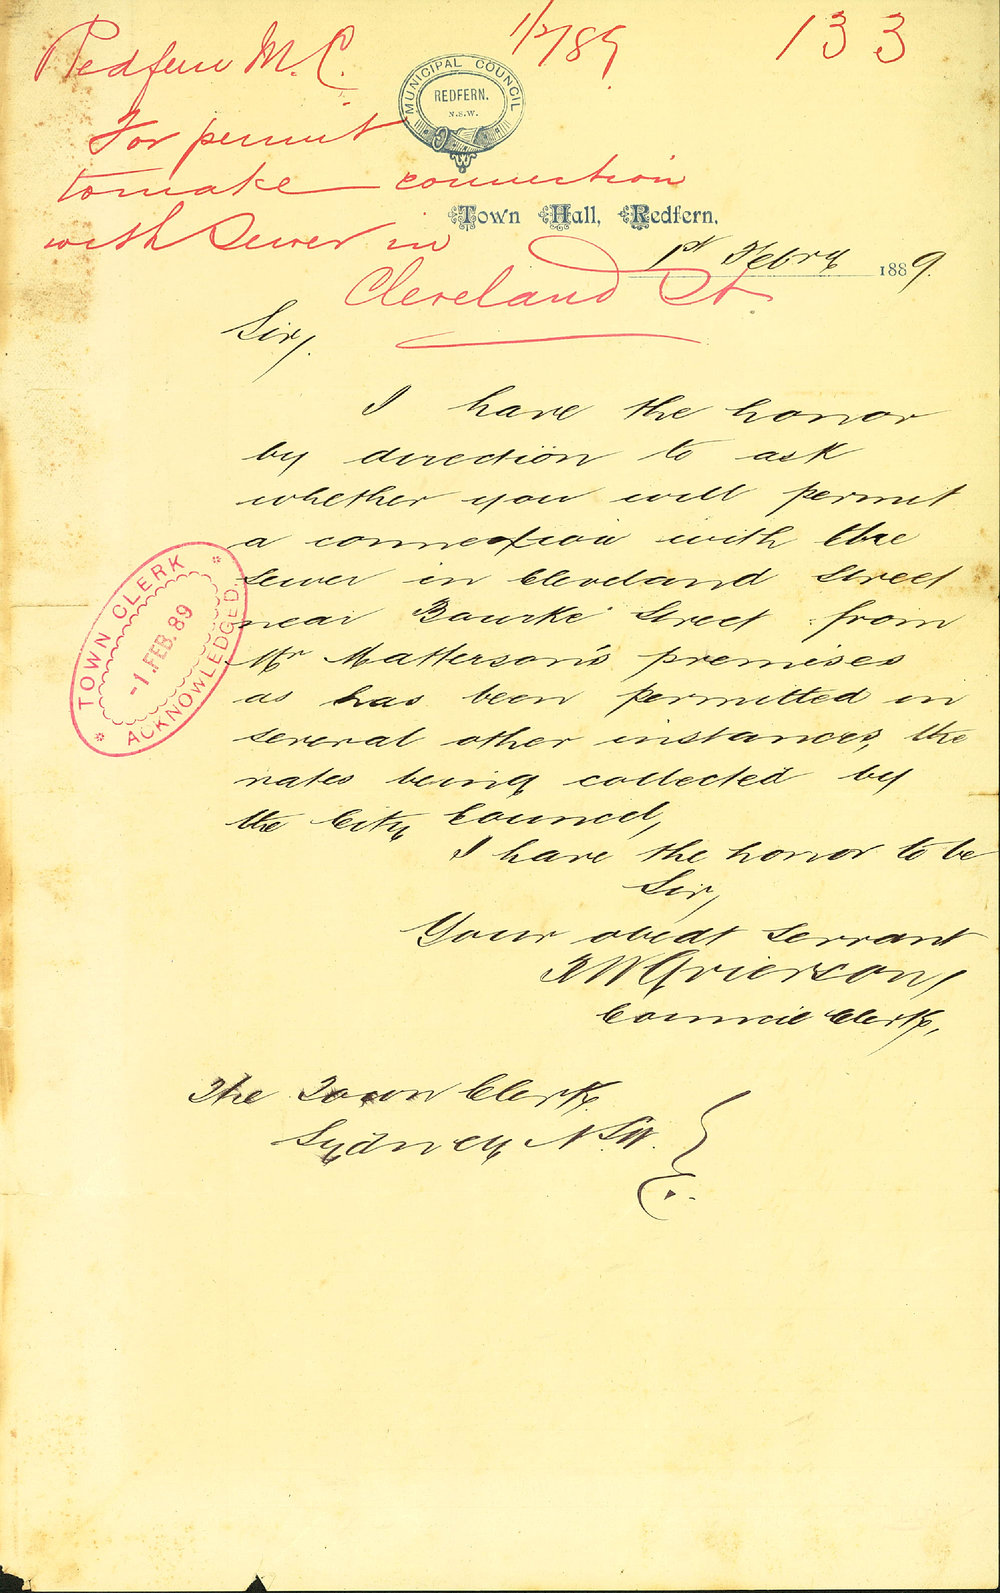 Redfern M.C. 1/2/89 133
MUNICIPAL COUNCIL
REDFERN.
N.S.W.
For permit
to make connection
with Sewer in
Cleveland St.
Town Hall, Redfern,
1st Febry 1889.
Sir,
I have the honor
by direction to ask
whether you will permit
a connexion with the
sewer in Cleveland Street
near Bourke Street from
Mr Matterson's premises
as has been permitted in
several other instances, the
rates being collected by
the City Council,
I have the honor to be
Sir,
Your obedt servant
Grierson,
Council Clerk,
TOWN CLERK
-1.FEB.89
ACKNOWLEDGED.
The Town Clerk
Sydney N.S.W.